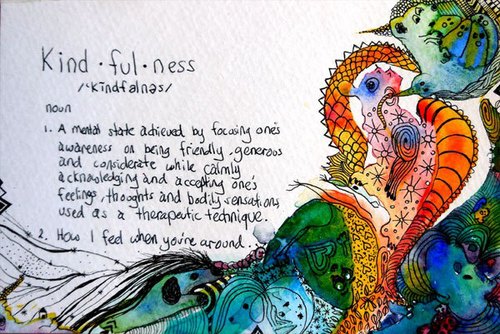 Kind·ful·ness
/ˈkīndfəlnəs/
noun
1. A mental state achieved by focusing one's
awareness on being friendly, generous
and considerate while calmly
acknagledging and accepting one's
feelings, thoughts and bodily sensations
used as a therapeutic technique.
2. How I feel when you're around.